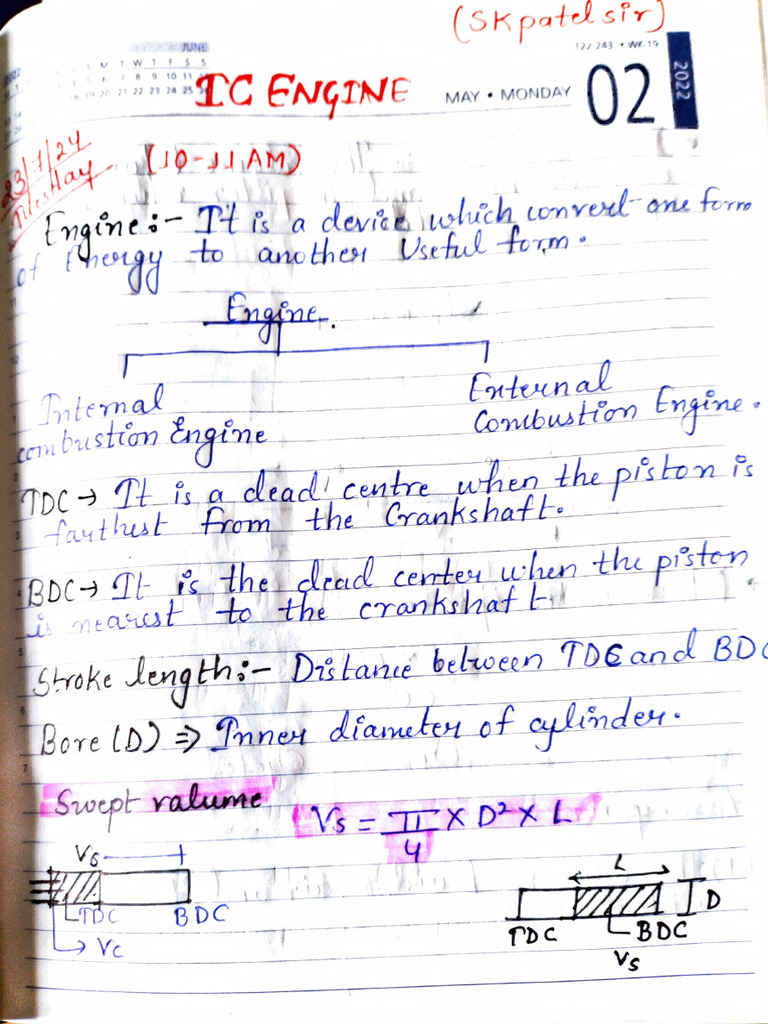 (SK patel sir)
JUNE
122-243 • WK-19
2022
IC ENGINE
MAY • MONDAY
02
23/7/24
(10-11 AM)
Engine:- It is a device which convert one form
of Energy to another Useful form.
Engine.
Internal
combustion Engine
External
Combustion Engine.
TDC → It is a dead centre when the piston is
farthest from the Crankshaft.
BDC → It is the dead center when the piston
is nearest to the crankshaft.
Stroke length:- Distance between TDC and BDC
Bore (D) ⇒ Inner diameter of cylinder.
Swept valume
Vs = π/4 × D² × L
Vs
TDC
BDC
Vc
L
D
TDC
BDC
Vs